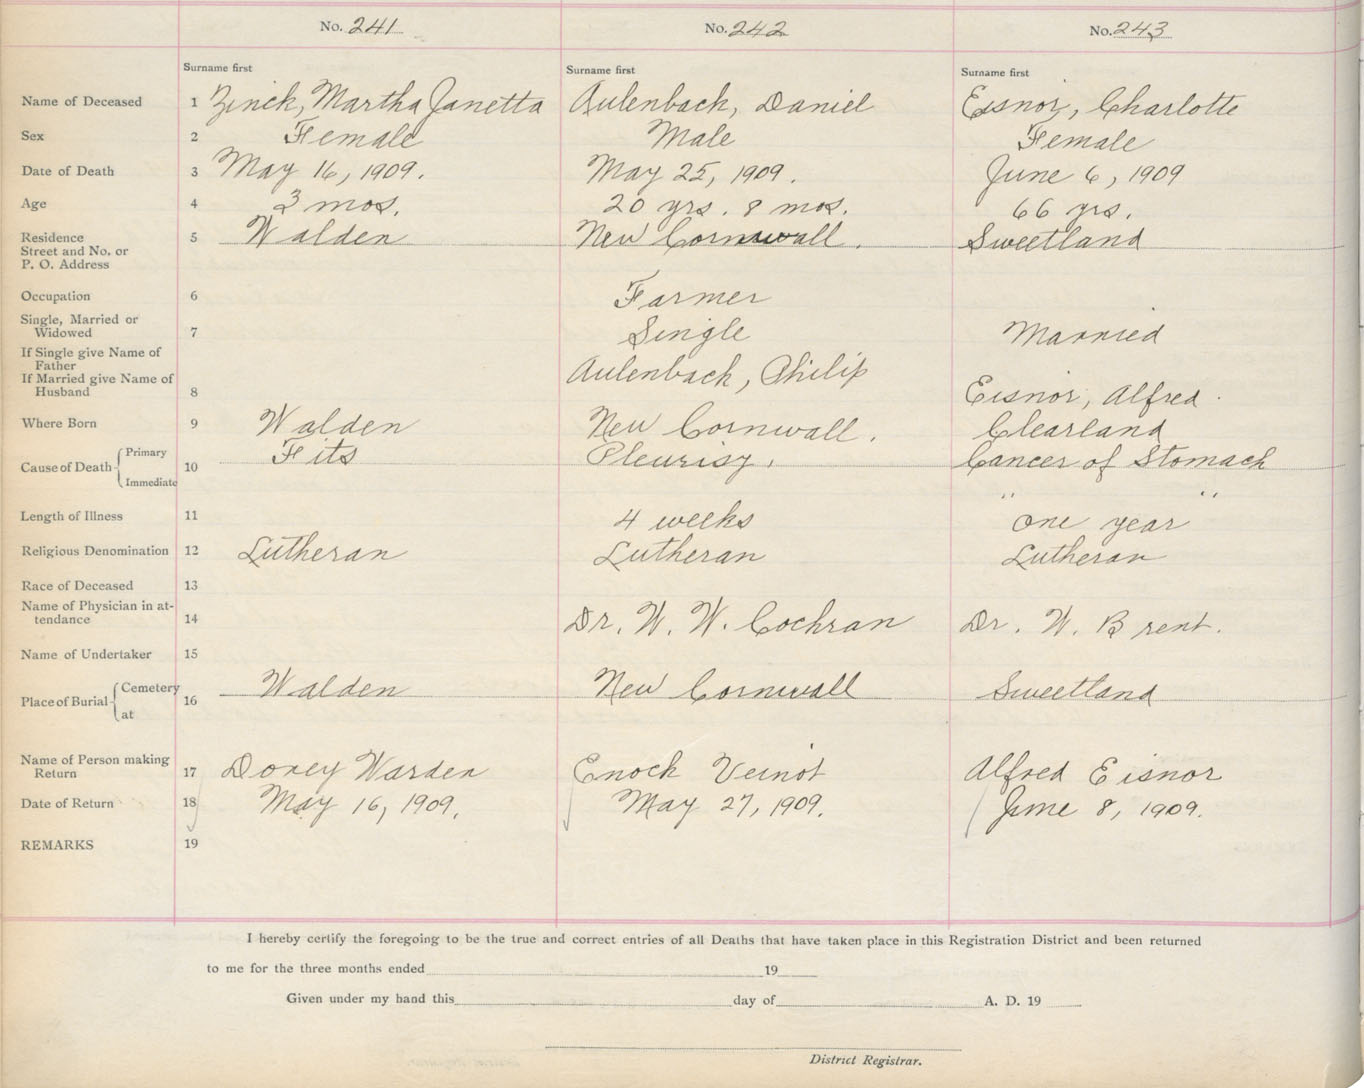 No. 241 No. 242 No. 243
Surname first Surname first Surname first
Name of Deceased 1 Zinck, Martha Janetta Aulenback, Daniel Eisnor, Charlotte
Sex 2 Female Male Female
Date of Death 3 May 16, 1909. May 25, 1909. June 6, 1909
Age 4 3 mos. 20 yrs. 8 mos. 66 yrs.
Residence 5 Walden New Cornwall. Sweetland
Street and No. or
P. O. Address
Occupation 6 Farmer
Single, Married or
Widowed 7 Single Married
If Single give Name of
Father Aulenback, Philip
If Married give Name of
Husband 8 Eisnor, Alfred.
Where Born 9 Walden New Cornwall. Clearland
Cause of Death Primary 10 Fits Pleurisy. Cancer of Stomach
Immediate " "
Length of Illness 11 4 weeks one year
Religious Denomination 12 Lutheran Lutheran Lutheran
Race of Deceased 13
Name of Physician in at-
tendance 14 Dr. W. W. Cochran Dr. W. Brent.
Name of Undertaker 15
Place of Burial Cemetery 16 Walden New Cornwall Sweetland
at
Name of Person making
Return 17 Dorey Warden Enock Veinot Alfred Eisnor
Date of Return 18 May 16, 1909. May 27, 1909. June 8, 1909.
REMARKS 19
I hereby certify the foregoing to be the true and correct entries of all Deaths that have taken place in this Registration District and been returned
to me for the three months ended 19
Given under my hand this day of A. D. 19
District Registrar.